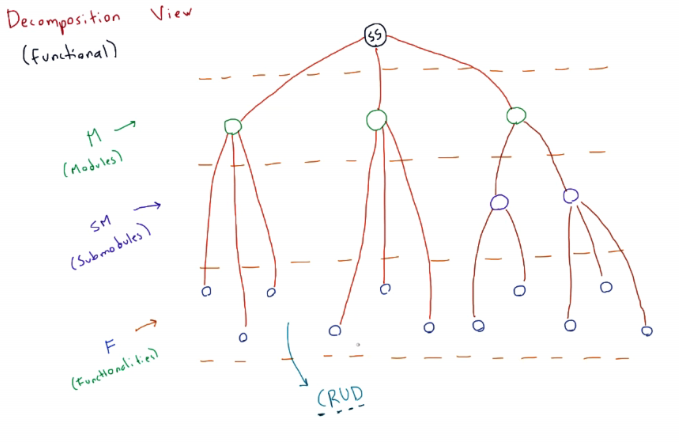 Decomposition View
(Functional)
SS
M
(Modules)
SM
(Submodules)
F
(Functionalities)
CRUD